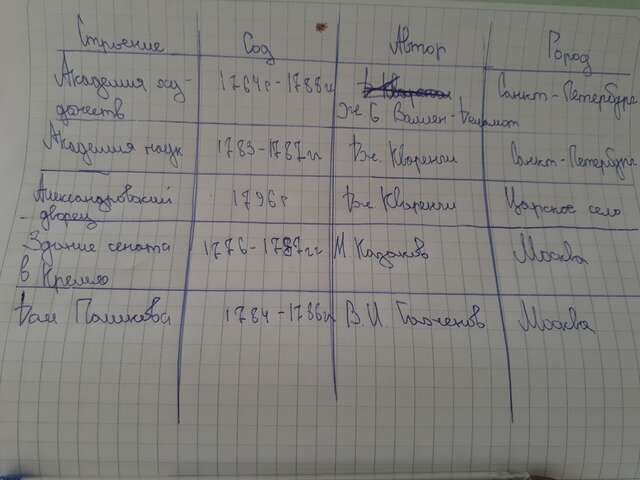 Строение Год Автор Город
Академия ху- 1764г-1788г Санкт-Петербург
дожеств Ж Б Валлен-Деламот
Академия наук 1783-1787гг Дж. Кваренги Санкт-Петербург
Александровский 1796г Дж Кваренги Царское село
дворец
Здание сената 1776-1787гг М Казаков Москва
в Кремле
Дом Пашкова 1784-1786гг В. И. Баженов Москва